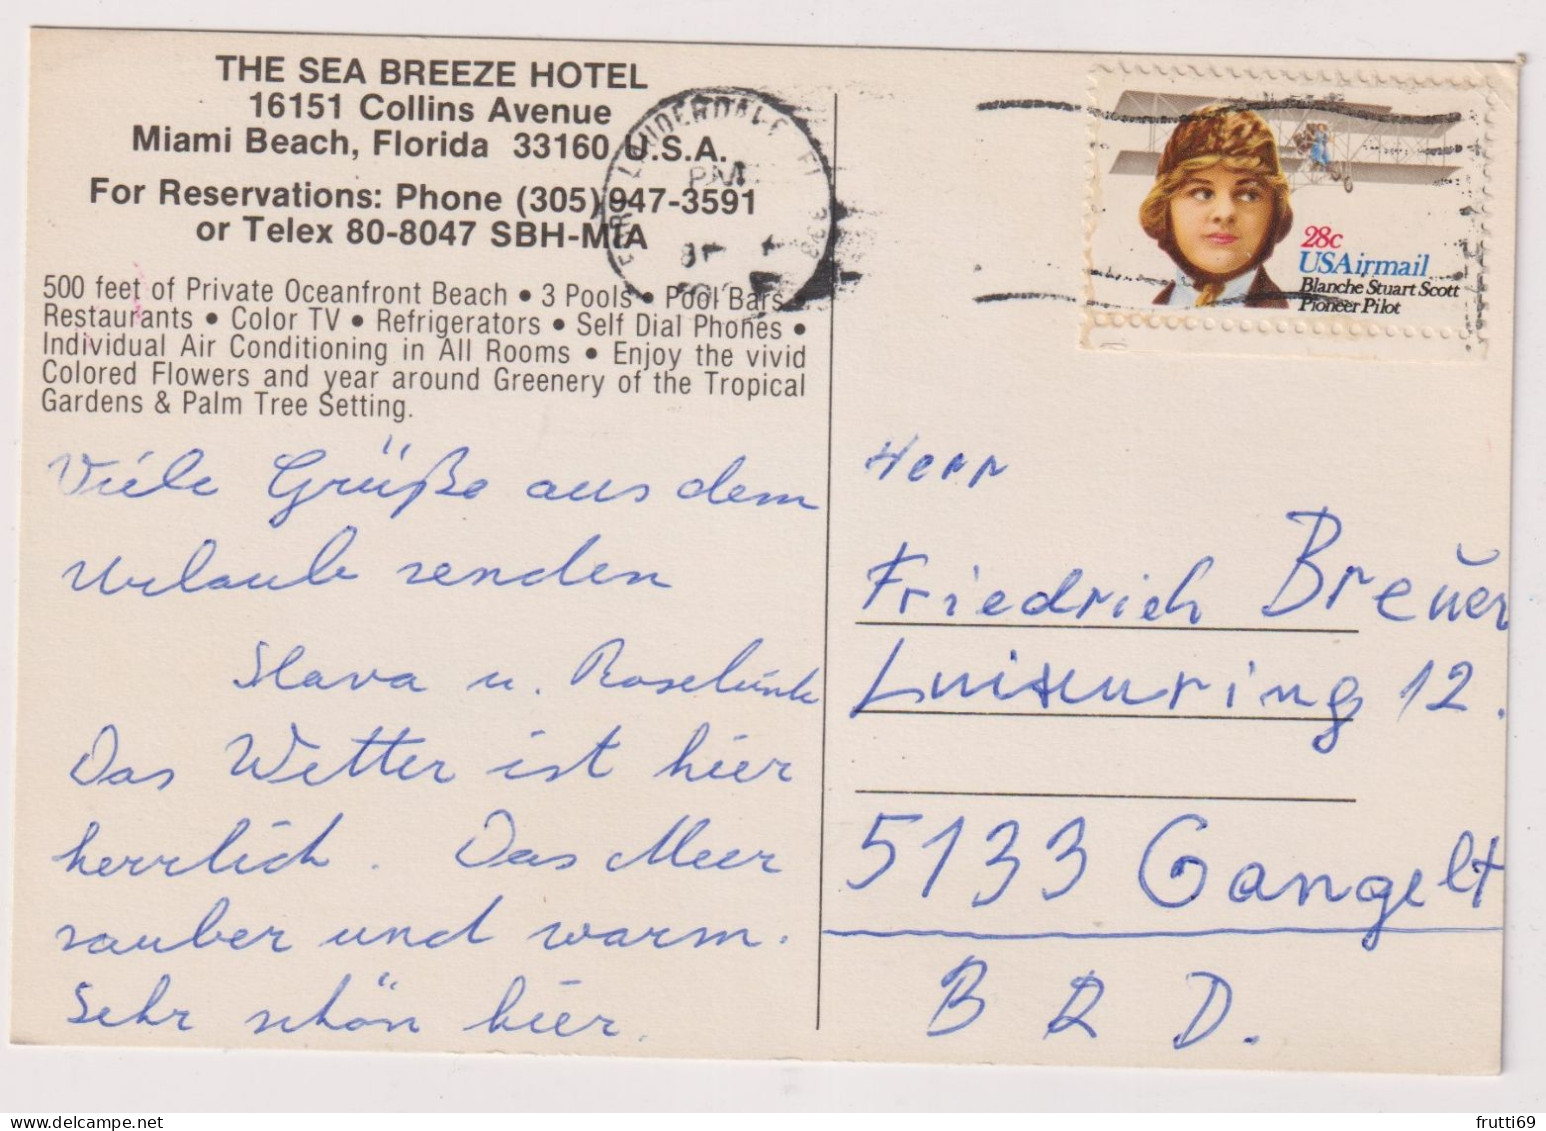 THE SEA BREEZE HOTEL
16151 Collins Avenue
Miami Beach, Florida 33160 U.S.A.
For Reservations: Phone (305) 947-3591
or Telex 80-8047 SBH-MIA
500 feet of Private Oceanfront Beach • 3 Pools • Pool Bars •
Restaurants • Color TV • Refrigerators • Self Dial Phones •
Individual Air Conditioning in All Rooms • Enjoy the vivid
Colored Flowers and year around Greenery of the Tropical
Gardens & Palm Tree Setting.
Viele Grüße aus dem
Urlaub senden
Slava u.
Das Wetter ist hier
herrlich. Das Meer
sauber und warm.
Sehr schön hier.
LAUDERDALE FL
PM
28c
USAirmail
Blanche Stuart Scott
Pioneer Pilot
Herr
Friedrich Breuer
Luisenring 12.
5133 Gangelt
BRD.
frutti69